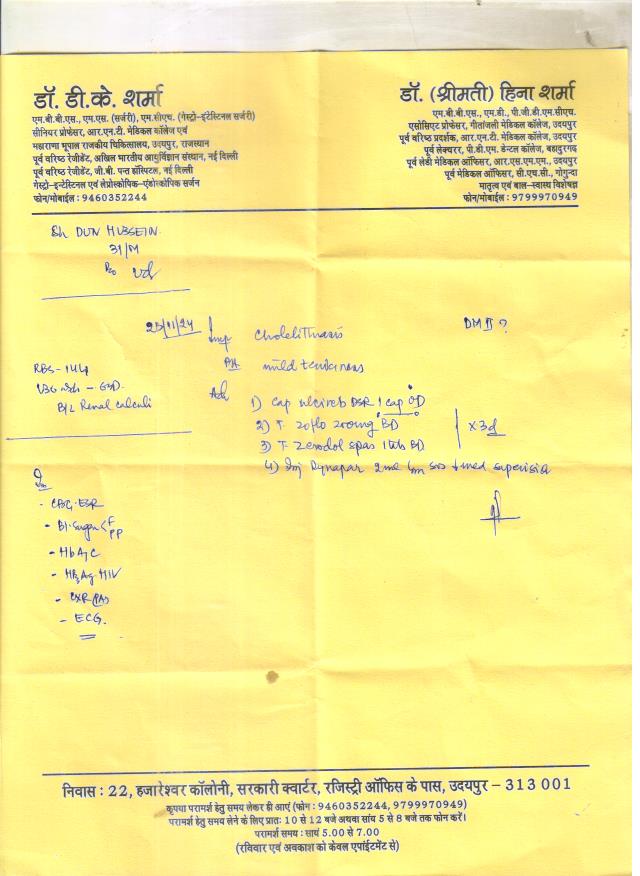 डॉ. डी.के. शर्मा
एम.बी.बी.एस., एम.एस. (सर्जरी), एम.सीएच. (गेस्ट्रो-इंटेस्टिनल सर्जरी)
सीनियर प्रोफेसर, आर.एन.टी. मेडिकल कॉलेज एवं
महाराणा भूपाल राजकीय चिकित्सालय, उदयपुर, राजस्थान
पूर्व वरिष्ठ रेजीडेंट, अखिल भारतीय आयुर्विज्ञान संस्थान, नई दिल्ली
पूर्व वरिष्ठ रेजीडेंट, जी.बी. पन्त हॉस्पिटल, नई दिल्ली
गेस्ट्रो-इन्टेस्टिनल एवं लेप्रोस्कोपिक-एंडोस्कोपिक सर्जन
फोन/मोबाईल : 9460352244
डॉ. (श्रीमती) हिना शर्मा
एम.बी.बी.एस., एम.डी., पी.जी.डी.एम.सीएच.
एसोसिएट प्रोफेसर, गीतांजली मेडिकल कॉलेज, उदयपुर
पूर्व वरिष्ठ प्रदर्शक, आर.एन.टी. मेडिकल कॉलेज, उदयपुर
पूर्व लेक्चरर, पी.डी.एम. डेन्टल कॉलेज, बहादुरगढ़
पूर्व लेडी मेडिकल ऑफिसर, आर.एस.एम.एम., उदयपुर
पूर्व मेडिकल ऑफिसर, सी.एच.सी., गोगुन्दा
मातृत्व एवं बाल-स्वास्थ विशेषज्ञ
फोन/मोबाईल : 9799970949
Sh DUN HUSSEIN
31/M
R/o Ud
25/11/24 Imp Cholelithiasis DM II ?
P/A mild tenderness
RBS - 144
USG abdo - GBD
B/L Renal calculi
Adv
1) Cap DSR 1 cap OD
2) T. Zoflo 200mg BD
3) T Zerodol spas 1 tab BD
x 3d
4) Inj Dynapar 2ml I/m SOS med
- CBC. ESR
- Bl. Sugar < F PP
- HbA1C
- HBsAg HIV
- CXR (PA)
- ECG.
निवास : 22, हजारेश्वर कॉलोनी, सरकारी क्वार्टर, रजिस्ट्री ऑफिस के पास, उदयपुर – 313 001
कृपया परामर्श हेतु समय लेकर ही आएं (फोन : 9460352244, 9799970949)
परामर्श हेतु समय लेने के लिए प्रातः 10 से 12 बजे अथवा सांय 5 से 8 बजे तक फोन करें।
परामर्श समय : सायं 5.00 से 7.00
(रविवार एवं अवकाश को केवल एपॉईंटमेंट से)